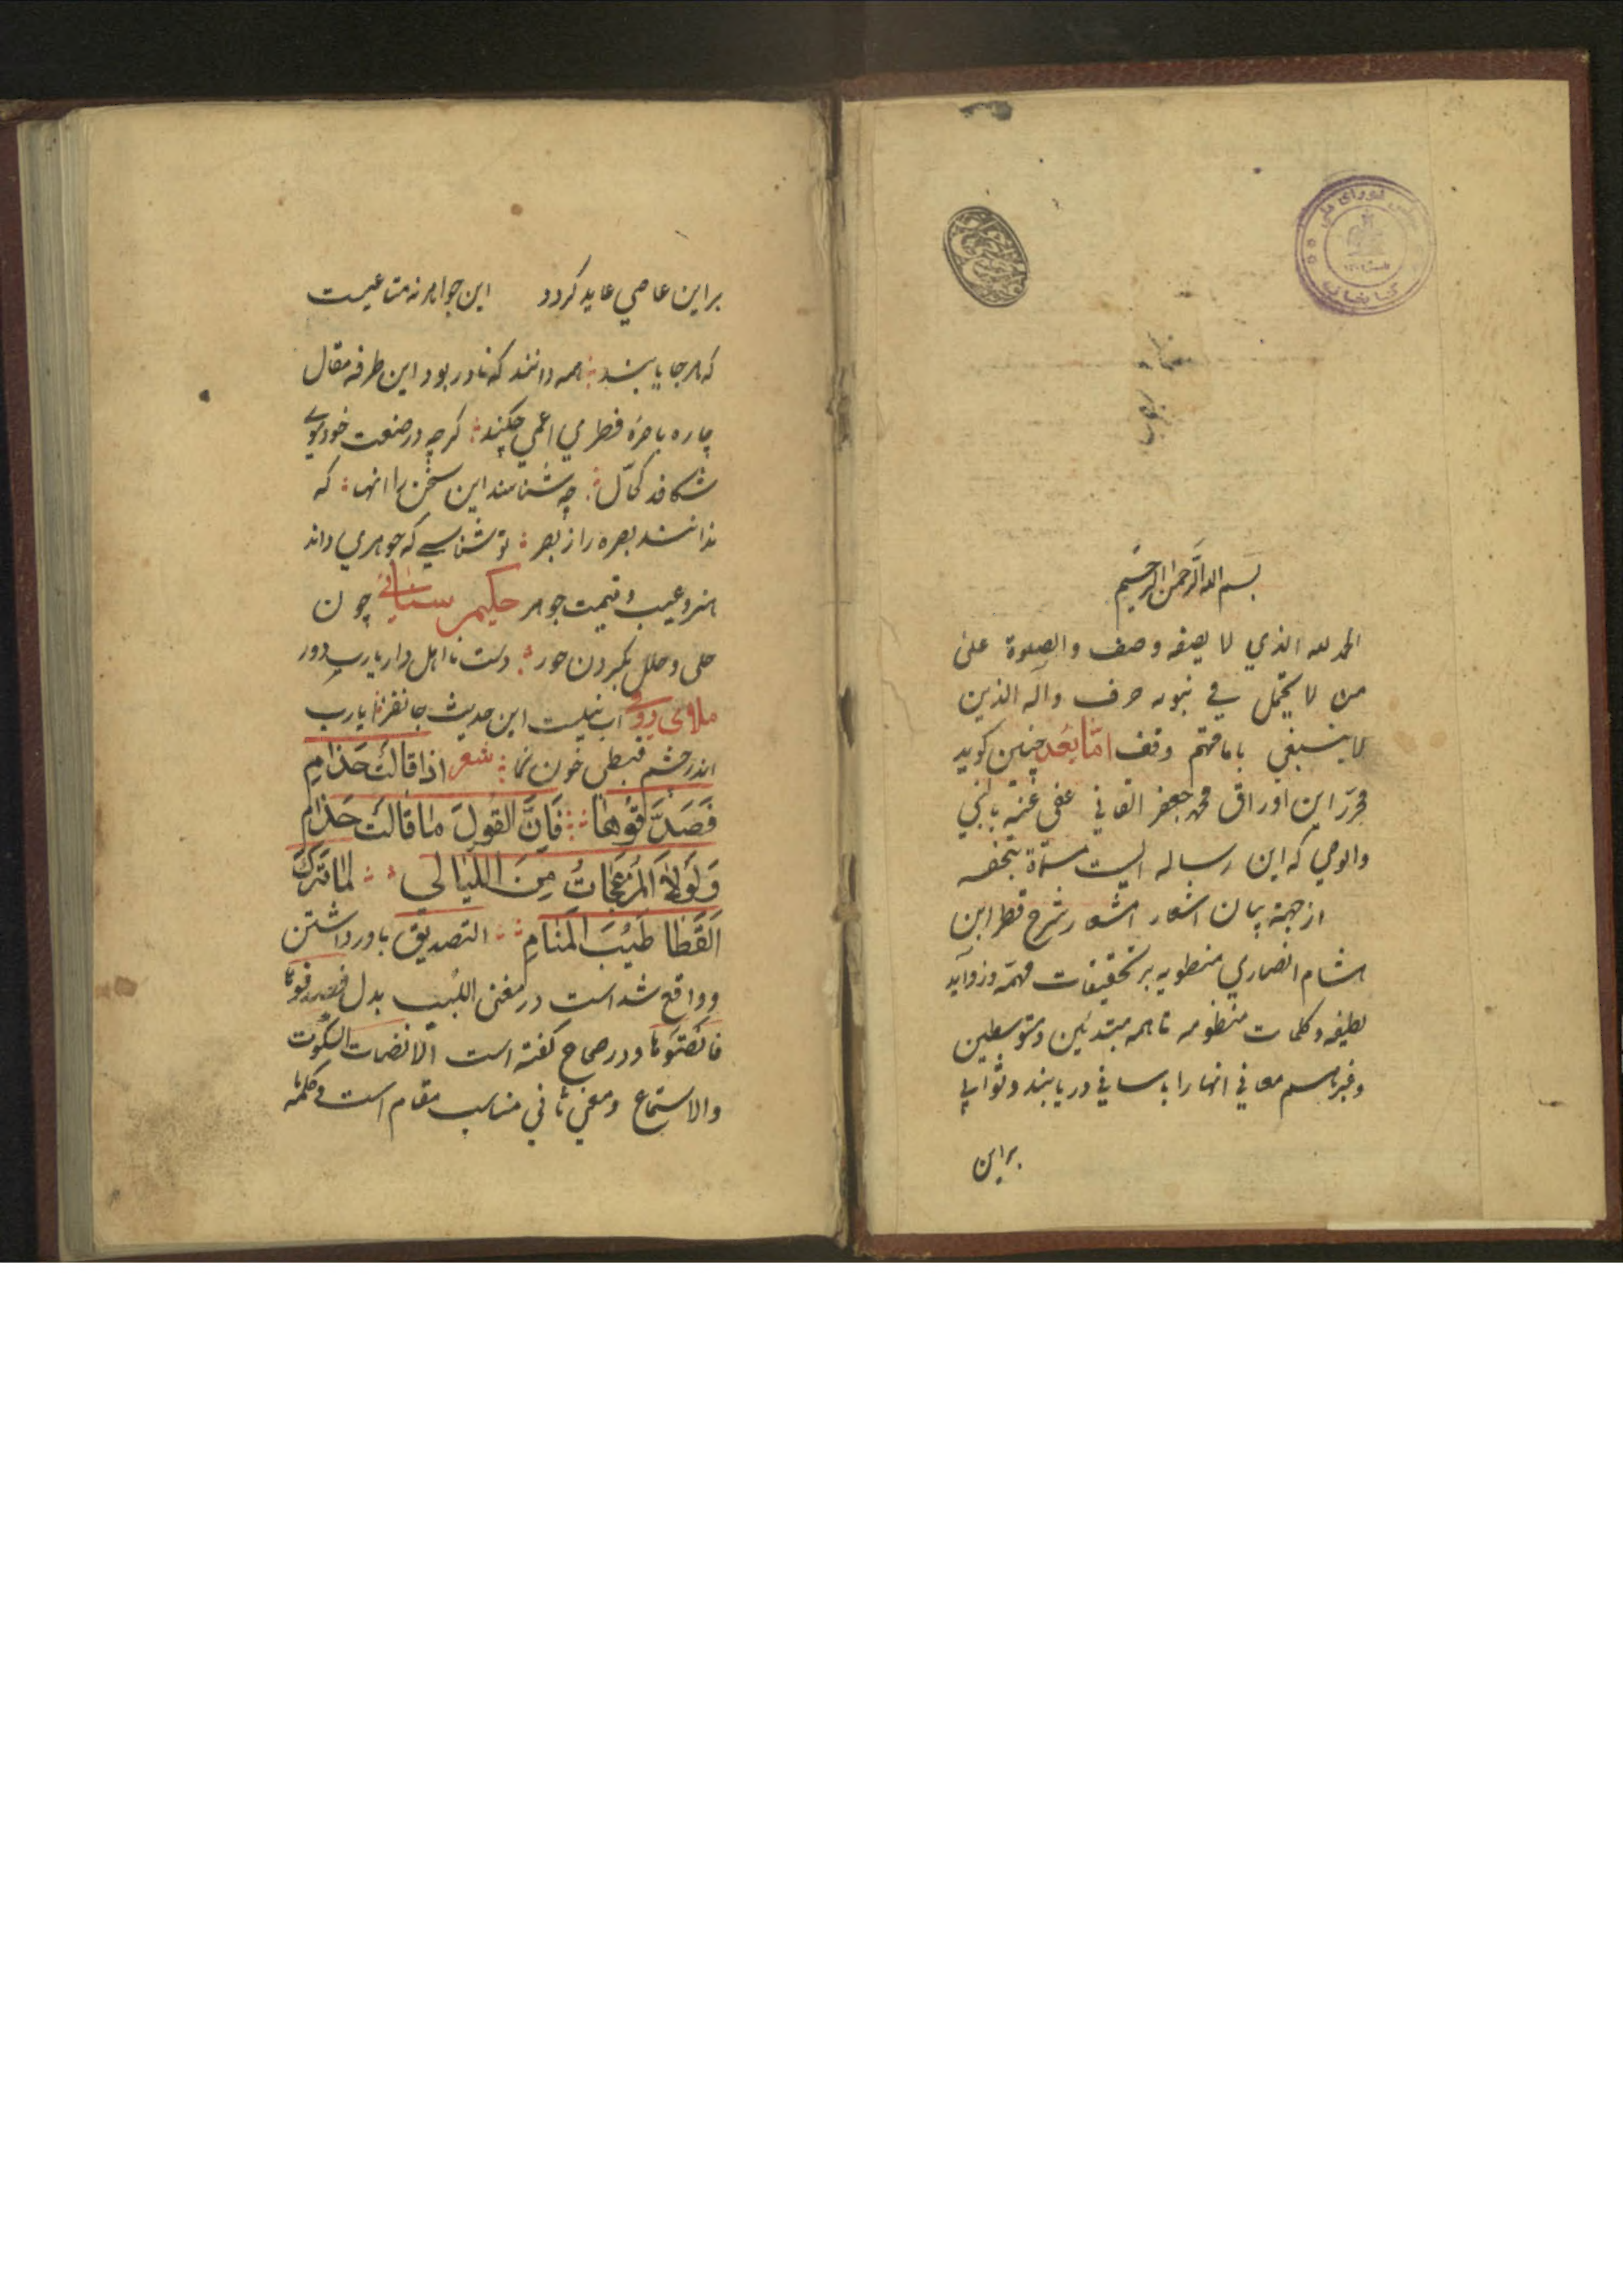 بسم الله الرحمن الرحیم
الحمد لله الذي لا یصفه وصف والصلوة علی
من لا یحتمل في نبوته حرف وآله الذین
لا ینبغي بامامتهم وقف امّا بَعُد چنین کوید
محرّر این اوراق محمد جعفر القایني عفی عنه بالنبي
والوصي که این رساله ایست مسمّاة بتحفه
از جهة بیان اشعار شرح قطر ابن
هشام انصاري منطویه بر تحقیقات مهمّه وزوآید
لطیفه وکلمات منظومه تا همه مبتدئین ومتوسطین
وغیرهم معاني انها را باساني دریابند وثوابي
براین
براین عاصي عاید کردد این جواهر نه متاعیست
که هرجا یابند همه دانند که نادر بود این طرفه مقال
چاره باصرهٔ فطري اعمی چکند کرچه درصنعت خود موي
شکافد کحّال چه شناسند این سخن را انها که
ندانند بصره را ز بصر تو شناسي که جوهري داند
هنر وعیب و قیمت جوهر حکیم سنائي چون
حلی وحلل بکردن حور دست نا اهل دار یارب دور
ملای رومي اب نیلست این حدیث جانفزا یارب
اندر چشم قبطي خون نما شعر اذا قالَت حَذامِ
فَصَدِّقُوها فَاِنَّ القَولَ ما قالَت حَذام
وَلَولاَ المُزعِجاتُ مِنَ اللَیالي لَما تَرَكَ
اَلقَطا طَیِّبَ المَنامِ التصدیق باور داشتن
وواقع شده است در مغنی اللبیب بدل فصدقوها
فانصتوها ودر صحاح کفته است الانصات السکوت
والاستماع ومعني ثاني مناسب مقام است وکلمهٔ